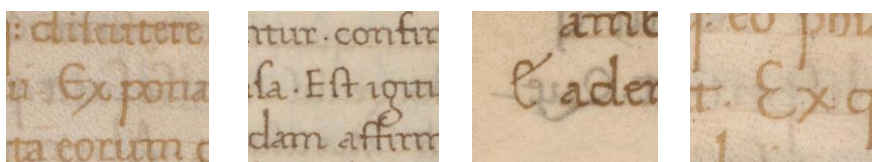 discutere
Ex pona
ta eorum
ntur. confir
sa. Est igitu
dam affirm
amb
& ader
eo phi
t. Ex q